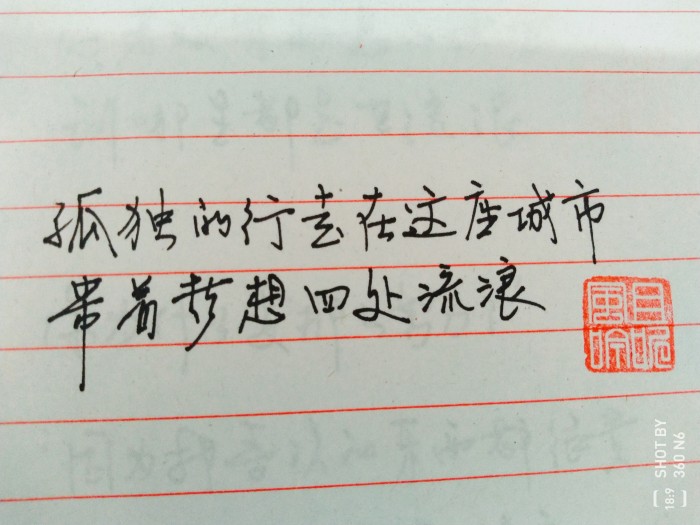 孤独的行走在这座城市
带着梦想四处流浪
SHOT BY
360 N6
18:9